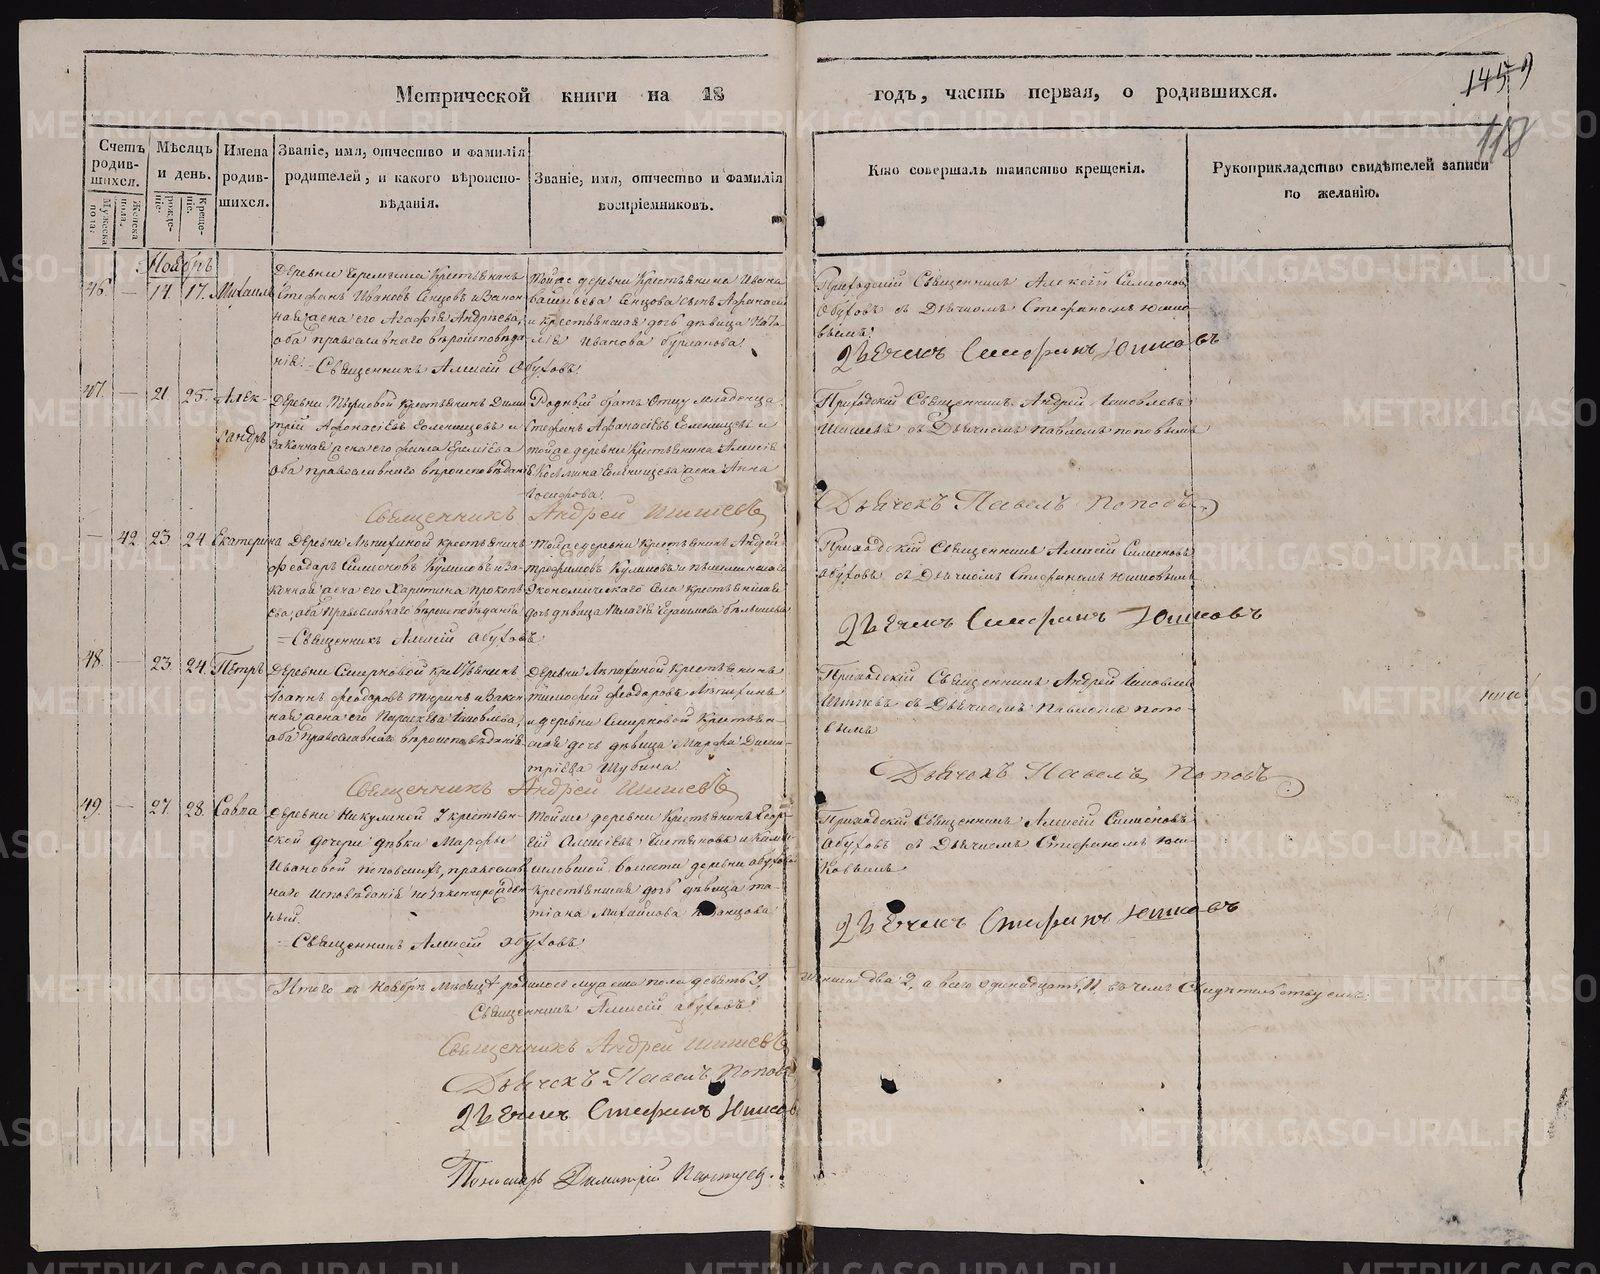 1459
118
Метрической книги на 18
годъ, часть первая, о родившихся.
Счетъ родив-шихся.
Мѣсяцъ и день.
Имена родив-шихся.
Званіе, имя, отчество и фамилія родителей, и какого вѣроиспо-вѣданія.
Званіе, имя, отчество и фамилія воспріемниковъ.
Кто совершалъ таинство крещенія.
Рукоприкладство свидѣтелей записи по желанію.
Мужеска пола.
Женска пола.
рожде-ніе.
Креще-ніе.
Ноябрь
46. — 14. 17. Михаилъ
Стефанъ Ивановъ Сенцовъ и Закон-
ная жена его Агафія Андреева,
оба православнаго вѣроисповѣда-
нія. Священникъ Алексій Обуховъ.
Тойже деревни Крестьянина Ивана
Васильева Сенцова сынъ Афанасій
и крестьянская дочь дѣвица Ната-
лія Иванова
Приходскій Священникъ Алексій Симеоновъ
Обуховъ съ Дьячкомъ Стефаномъ Юшко-
вымъ.
Дьячекъ Стефанъ Юшковъ
47. — 21. 25. Алек-
сандръ
Деревни крестьянинъ Дими-
трій Афонасіевъ Еленищевъ и
Законная жена его Фекла Еремѣева
оба православнаго вѣроисповѣданія
Родный братъ Отцу младенца
Стефанъ Афанасіевъ Еленищевъ и
тойже деревни Крестьянина Алексія
Еленищева жена Анна
Іосифова.
Священникъ Андрей Шишевъ
Приходскій Священникъ Андрей Іаковлевъ
Шишевъ съ Дьячкомъ Павломъ Поповымъ
Дьячекъ Павелъ Поповъ
— 42 23 24 Екатерина
Деревни Липихиной крестьянинъ
Феодоръ Симеоновъ Куликовъ и За-
конная жена его Харитина Прокопь-
ева, оба Православнаго вѣроисповѣданія
= Священникъ Алексій Обуховъ
Тойже деревни Крестьянинъ Андрей
Трофимовъ Куликовъ и
Экономическаго Села Крестьянская
дочь дѣвица Пелагія
Приходскій Священникъ Алексій Симеоновъ
Обуховъ съ Дьячкомъ Стефаномъ Юшковымъ
Дьячекъ Стефанъ Юшковъ
48. — 23. 24. Петръ
Деревни Смирновой крестьянинъ
Іоаннъ Феодоровъ и Закон-
ная жена его Параскева Іаковлева,
оба Православнаго вѣроисповѣданія
Деревни Липихиной крестьянинъ
Тимофей Феодоровъ Липихинъ
и деревни Смирновой Крестьян-
ская дочь дѣвица Марфа Дими-
тріева Шубина.
Священникъ Андрей Шишевъ
Приходскій Священникъ Андрей Іаковлевъ
Шишевъ съ Дьячкомъ Павломъ Попо-
вымъ
Дьячекъ Павелъ Поповъ
49. — 27. 28. Савва
Деревни Никулиной У крестьян-
ской дочери дѣвки Марфы
Ивановой православ-
наго исповѣданія незаконнорожден-
ный.
= Священникъ Алексій Обуховъ.
Тойже деревни Крестьянинъ Геор-
гій Алексіевъ и Камы-
шловской волости деревни Обуховой
крестьянская дочь дѣвица Та-
тіана Михаилова Казанцова
Приходскій Священникъ Алексій Симеоновъ
Обуховъ съ Дьячкомъ Стефаномъ Юш-
ковымъ
Дьячекъ Стефанъ Юшковъ
Итого въ Ноябрѣ Мѣсяцѣ родилось мужеска пола девять 9, женска два 2, а всего одинадцать, 11, въ чемъ Свидѣтельствуемъ:
Священникъ Алексій Обуховъ
Священникъ Андрей Шишевъ
Дьячекъ Павелъ Поповъ
Дьячекъ Стефанъ Юшковъ
Пономарь Димитрій
METRIKI.GASO-URAL.RU